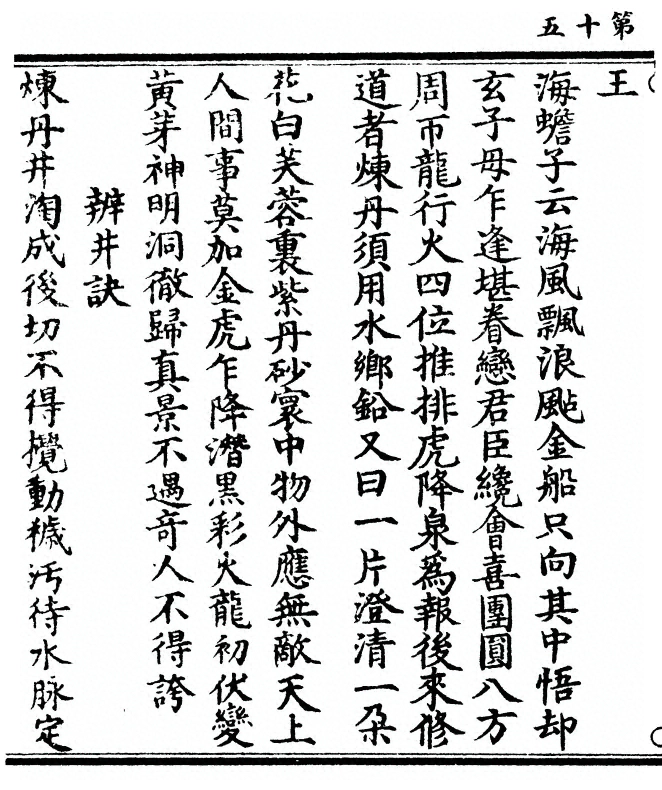 第十五
王
海蟾子云海風飄浪颭金船只向其中悟却
玄子母乍逢堪眷戀君臣纔會喜團圓八方
周帀龍行火四位推排虎降泉爲報後來修
道者煉丹須用水鄉鉛又曰一片澄清一朶
花白芙蓉裏紫丹砂寰中物外應無敵天上
人間事莫加金虎乍降潛黑彩火龍初伏變
黃芽神明洞徹歸真景不遇奇人不得誇
辨井訣
煉丹井淘成後切不得攪動穢汚待水脉定